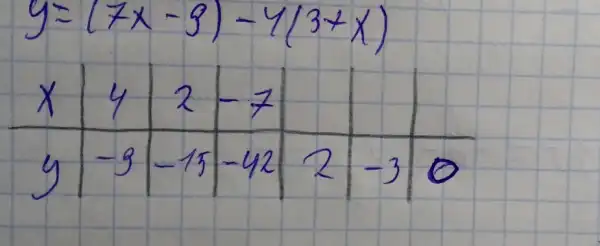 y = (7x - 9) - 4(3 + x)
x 4 2 -7
y -9 -15 -42 2 -3 0